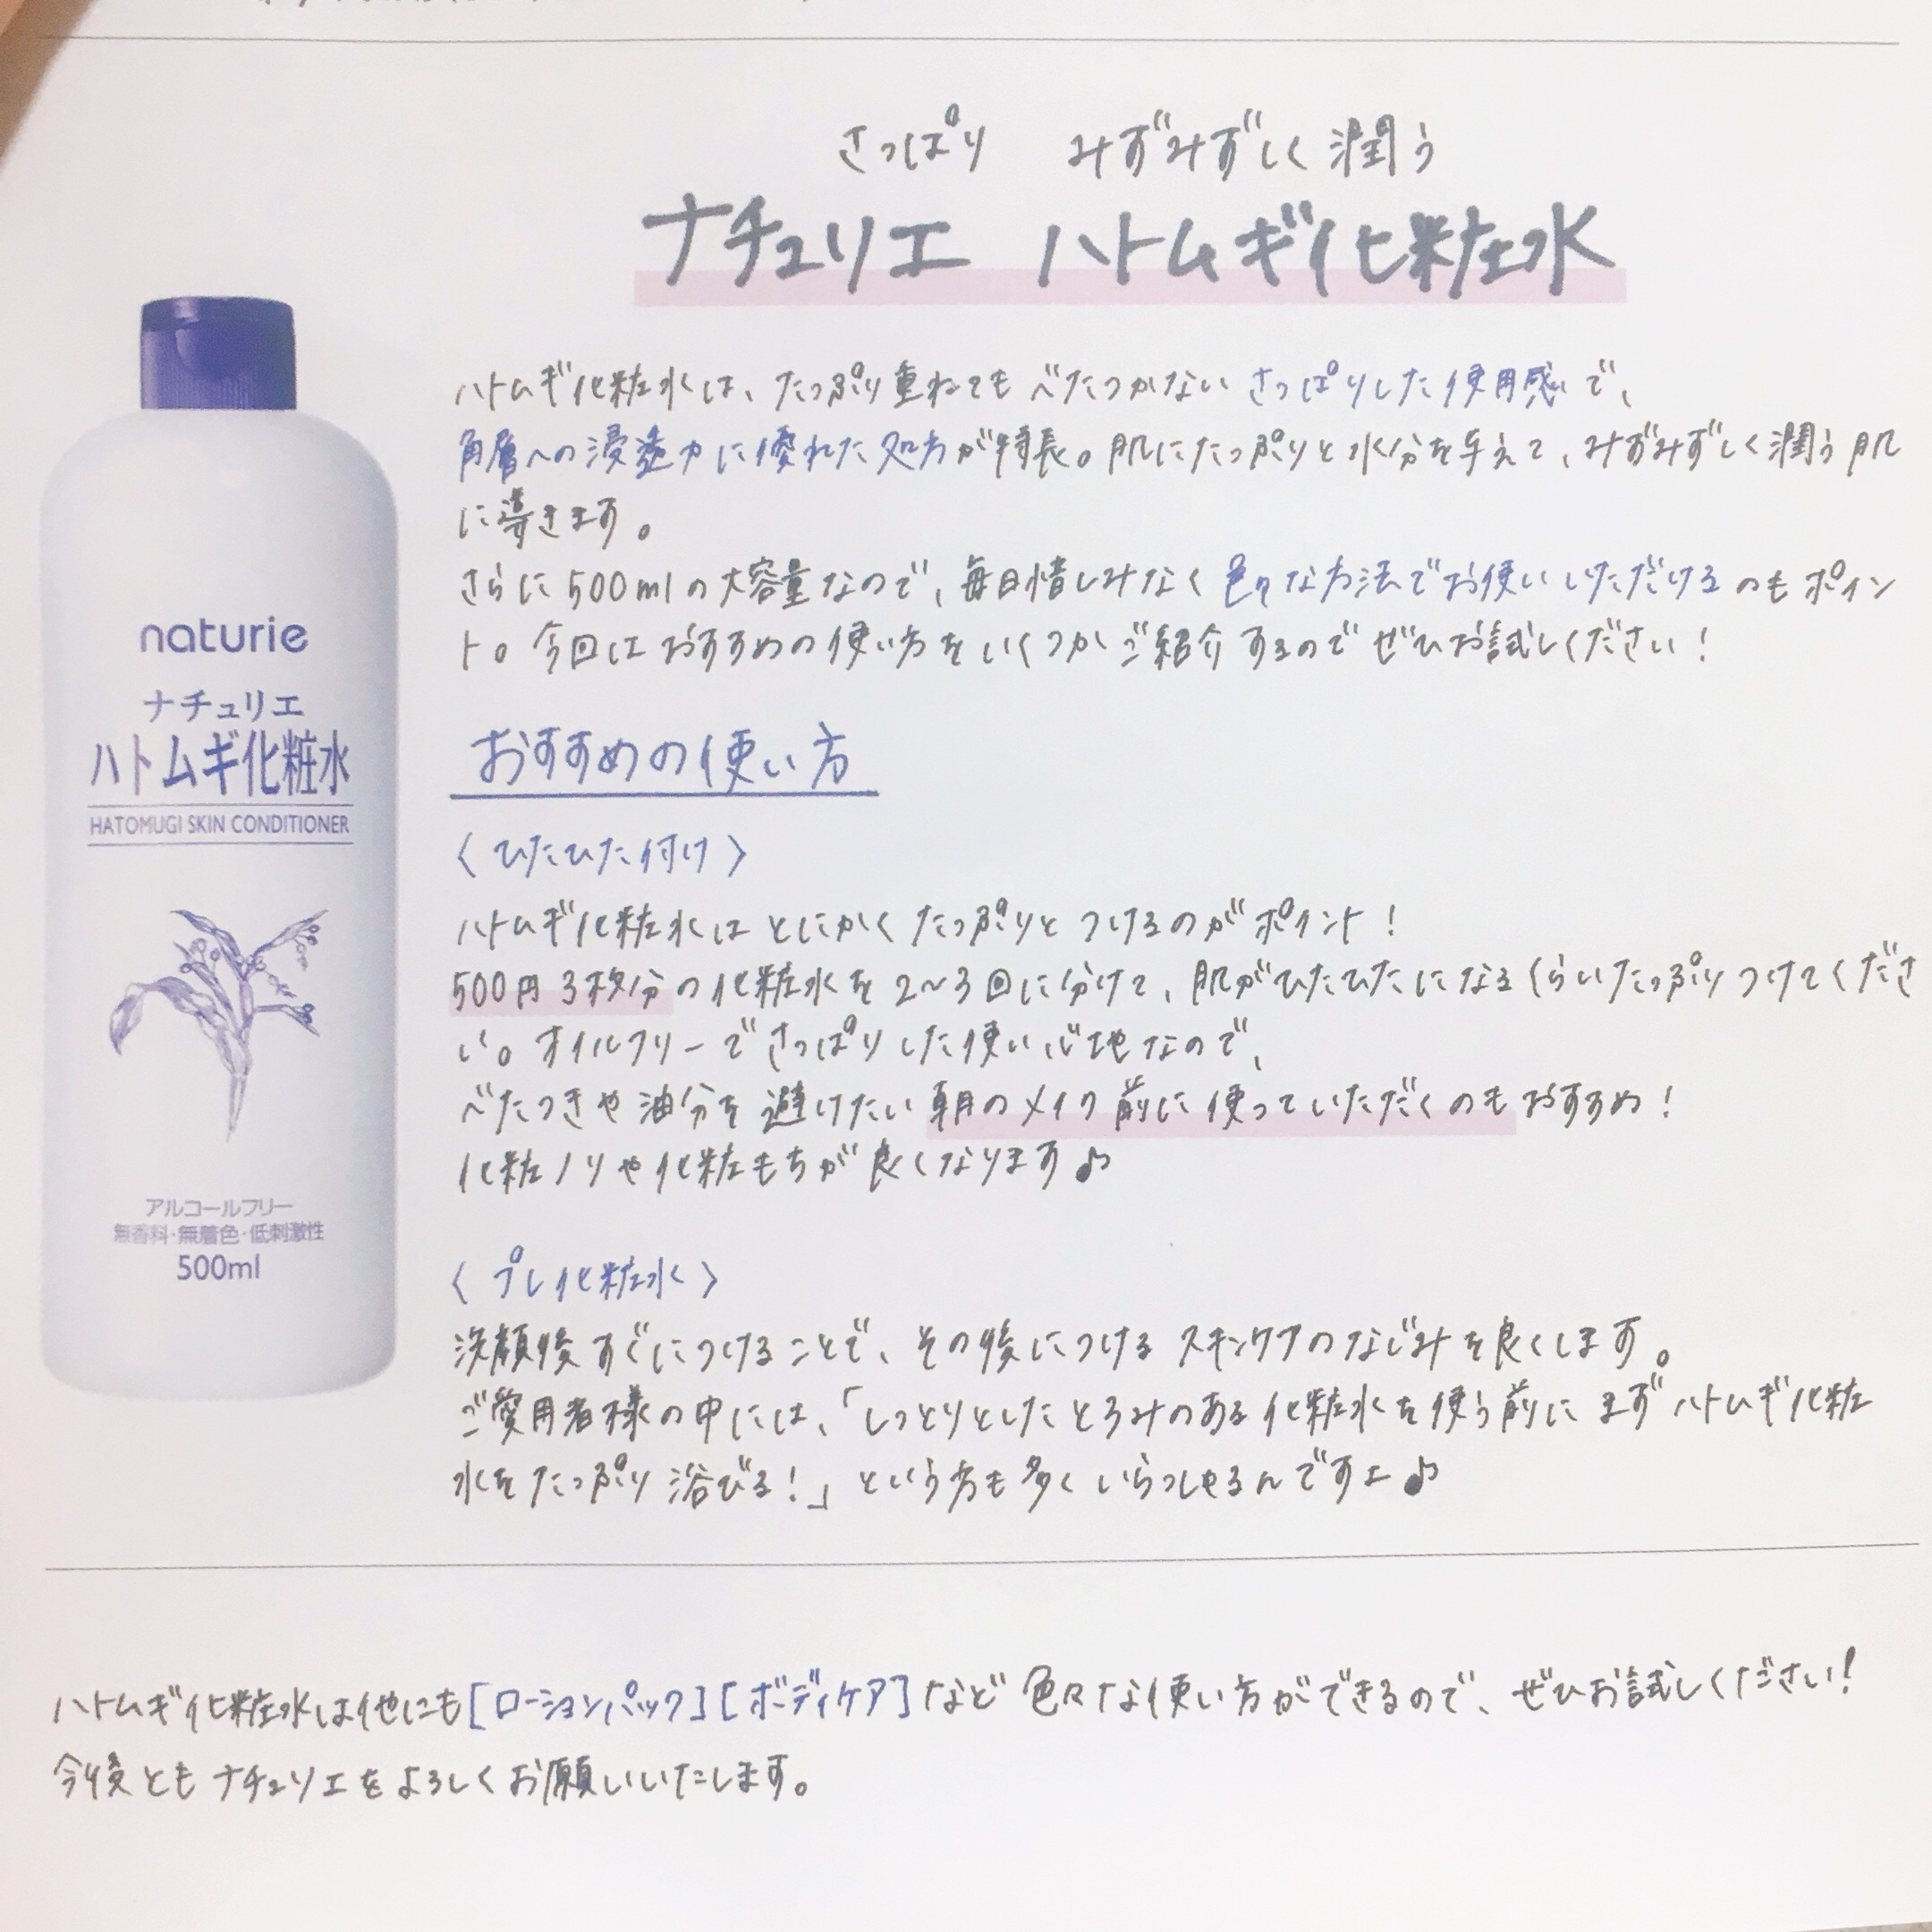 さっぱり　みずみずしく潤う
ナチュリエ　ハトムギ化粧水
ハトムギ化粧水は、たっぷり重ねてもべたつかないさっぱりした使用感で、
角層への浸透力に優れた処方が特長。肌にたっぷりと水分を与えて、みずみずしく潤う肌
に導きます。
さらに500mlの大容量なので、毎日惜しみなく色々な方法でお使いいただけるのもポイン
ト。今回はおすすめの使い方をいくつかご紹介するのでぜひお試しください！
おすすめの使い方
〈ひたひた付け〉
ハトムギ化粧水はとにかくたっぷりとつけるのがポイント！
500円3枚分の化粧水を2~3回に分けて、肌がひたひたになるくらいたっぷりつけてくださ
い。オイルフリーでさっぱりした使い心地なので、
べたつきや油分を避けたい朝のメイク前に使っていただくのもおすすめ！
化粧ノリや化粧もちが良くなります♪
〈プレ化粧水〉
洗顔後すぐにつけることで、その後につけるスキンケアのなじみを良くします。
ご愛用者様の中には、「しっとりとしたとろみのある化粧水を使う前にまずハトムギ化粧
水をたっぷり浴びる！」という方も多くいらっしゃるんですエ♪
naturie
ナチュリエ
ハトムギ化粧水
HATOMUGI SKIN CONDITIONER
アルコールフリー
無香料・無着色・低刺激性
500ml
ハトムギ化粧水は他にも[ローションパック][ボディケア]など色々な使い方ができるので、ぜひお試しください！
今後ともナチュリエをよろしくお願いいたします。